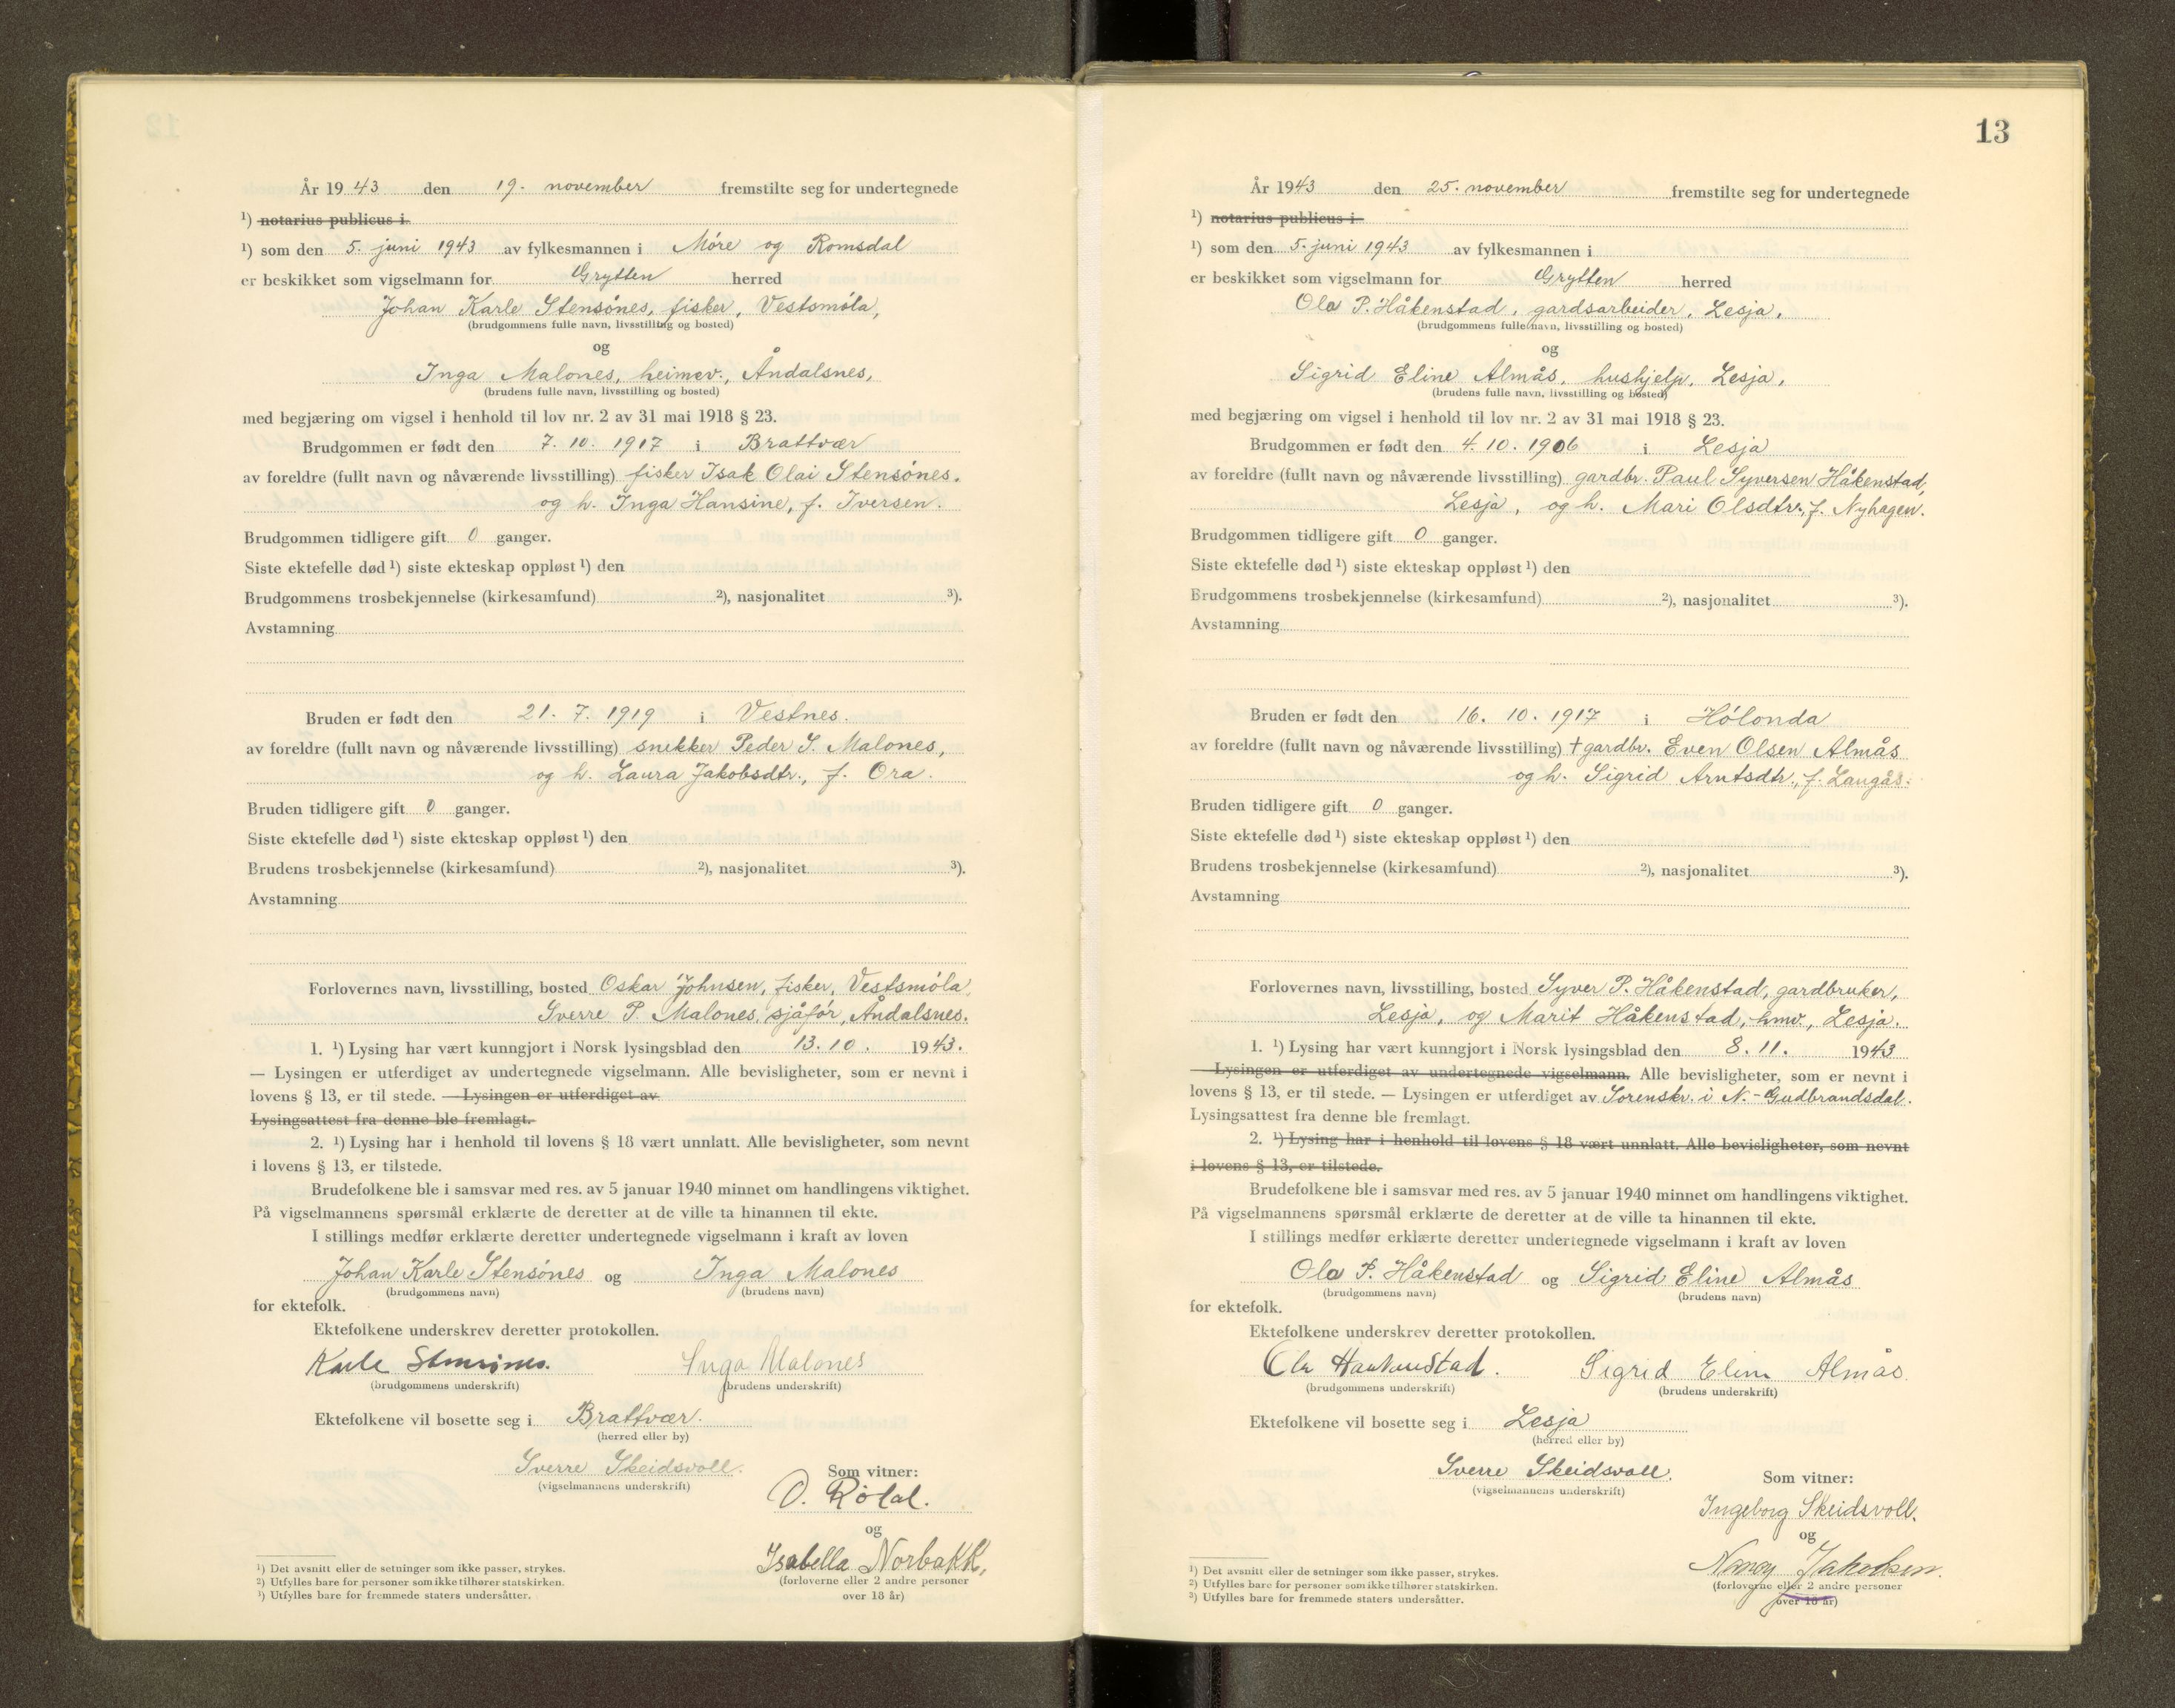 År 1943 den 19. november fremstilte seg for undertegnede
¹) notarius publicus i
¹) som den 5. juni 1943 av fylkesmannen i Møre og Romsdal
er beskikket som vigselmann for Grytten herred
Johan Karle Stensønes, fisker, Vestsmøla,
(brudgommens fulle navn, livsstilling og bosted)
og
Inga Malones, heimev., Åndalsnes,
(brudens fulle navn, livsstilling og bosted)
med begjæring om vigsel i henhold til lov nr. 2 av 31 mai 1918 § 23.
Brudgommen er født den 7. 10. 1917 i Brattvær
av foreldre (fullt navn og nåværende livsstilling) fisker Isak Olai Stensønes.
og h. Inga Hansine, f. Iversen.
Brudgommen tidligere gift 0 ganger.
Siste ektefelle død ¹) siste ekteskap oppløst ¹) den
Brudgommens trosbekjennelse (kirkesamfund) ²), nasjonalitet ³).
Avstamning
Bruden er født den 21. 7. 1919 i Vestnes.
av foreldre (fullt navn og nåværende livsstilling) snekker Peder S. Malones,
og h. Laura Jakobsdtr., f. Ora.
Bruden tidligere gift 0 ganger.
Siste ektefelle død ¹) siste ekteskap oppløst ¹) den
Brudens trosbekjennelse (kirkesamfund) ²), nasjonalitet ³).
Avstamning
Forlovernes navn, livsstilling, bosted Oskar Johnsen, fisker, Vestsmøla
Sverre P. Malones, sjåfør, Åndalsnes.
1. ¹) Lysing har vært kunngjort i Norsk lysingsblad den 13. 10. 1943.
— Lysingen er utferdiget av undertegnede vigselmann. Alle bevisligheter, som er nevnt i
lovens § 13, er til stede. — Lysingen er utferdiget av
Lysingsattest fra denne ble fremlagt.
2. ¹) Lysing har i henhold til lovens § 18 vært unnlatt. Alle bevisligheter, som nevnt
i lovens § 13, er tilstede.
Brudefolkene ble i samsvar med res. av 5 januar 1940 minnet om handlingens viktighet.
På vigselmannens spørsmål erklærte de deretter at de ville ta hinannen til ekte.
I stillings medfør erklærte deretter undertegnede vigselmann i kraft av loven
Johan Karle Stensønes og Inga Malones
(brudgommens navn) (brudens navn)
for ektefolk.
Ektefolkene underskrev deretter protokollen.
Karle Stensønes. Inga Malones
(brudgommens underskrift) (brudens underskrift)
Ektefolkene vil bosette seg i Brattvær.
(herred eller by)
Sverre Skeidsvoll.
(vigselmannens underskrift)
Som vitner:
O. Røtal.
og
Isabella Norbakk,
(forloverne eller 2 andre personer
over 18 år)
¹) Det avsnitt eller de setninger som ikke passer, strykes.
²) Utfylles bare for personer som ikke tilhører statskirken.
³) Utfylles bare for fremmede staters undersåtter.
13
År 1943 den 25. november fremstilte seg for undertegnede
¹) notarius publicus i
¹) som den 5. juni 1943 av fylkesmannen i
er beskikket som vigselmann for Grytten herred
Ola P. Håkenstad, gardsarbeider, Lesja,
(brudgommens fulle navn, livsstilling og bosted)
og
Sigrid Eline Almås, hushjelp, Lesja,
(brudens fulle navn, livsstilling og bosted)
med begjæring om vigsel i henhold til lov nr. 2 av 31 mai 1918 § 23.
Brudgommen er født den 4. 10. 1906 i Lesja
av foreldre (fullt navn og nåværende livsstilling) gardbr. Paul Syversen Håkenstad,
Lesja, og h. Mari Olsdtr., f. Nyhagen.
Brudgommen tidligere gift 0 ganger.
Siste ektefelle død ¹) siste ekteskap oppløst ¹) den
Brudgommens trosbekjennelse (kirkesamfund) ²), nasjonalitet ³).
Avstamning
Bruden er født den 16. 10. 1917 i Hølonda
av foreldre (fullt navn og nåværende livsstilling) † gardbr. Even Olsen Almås
og h. Sigrid Arntsdtr., f. Langås.
Bruden tidligere gift 0 ganger.
Siste ektefelle død ¹) siste ekteskap oppløst ¹) den
Brudens trosbekjennelse (kirkesamfund) ²), nasjonalitet ³).
Avstamning
Forlovernes navn, livsstilling, bosted Syver P. Håkenstad, gardbruker,
Lesja, og Marit Håkenstad, hmv., Lesja.
1. ¹) Lysing har vært kunngjort i Norsk lysingsblad den 8. 11. 1943
— Lysingen er utferdiget av undertegnede vigselmann. Alle bevisligheter, som er nevnt i
lovens § 13, er til stede. — Lysingen er utferdiget av Sorenskr. i N.-Gudbrandsdal.
Lysingsattest fra denne ble fremlagt.
2. ¹) Lysing har i henhold til lovens § 18 vært unnlatt. Alle bevisligheter, som nevnt
i lovens § 13, er tilstede.
Brudefolkene ble i samsvar med res. av 5 januar 1940 minnet om handlingens viktighet.
På vigselmannens spørsmål erklærte de deretter at de ville ta hinannen til ekte.
I stillings medfør erklærte deretter undertegnede vigselmann i kraft av loven
Ola P. Håkenstad og Sigrid Eline Almås
(brudgommens navn) (brudens navn)
for ektefolk.
Ektefolkene underskrev deretter protokollen.
Ola Haakenstad. Sigrid Eline Almås
(brudgommens underskrift) (brudens underskrift)
Ektefolkene vil bosette seg i Lesja
(herred eller by)
Sverre Skeidsvoll.
(vigselmannens underskrift)
Som vitner:
Ingeborg Skeidsvoll.
og
Nancy Jakobsen.
(forloverne eller 2 andre personer
over 18 år)
¹) Det avsnitt eller de setninger som ikke passer, strykes.
²) Utfylles bare for personer som ikke tilhører statskirken.
³) Utfylles bare for fremmede staters undersåtter.